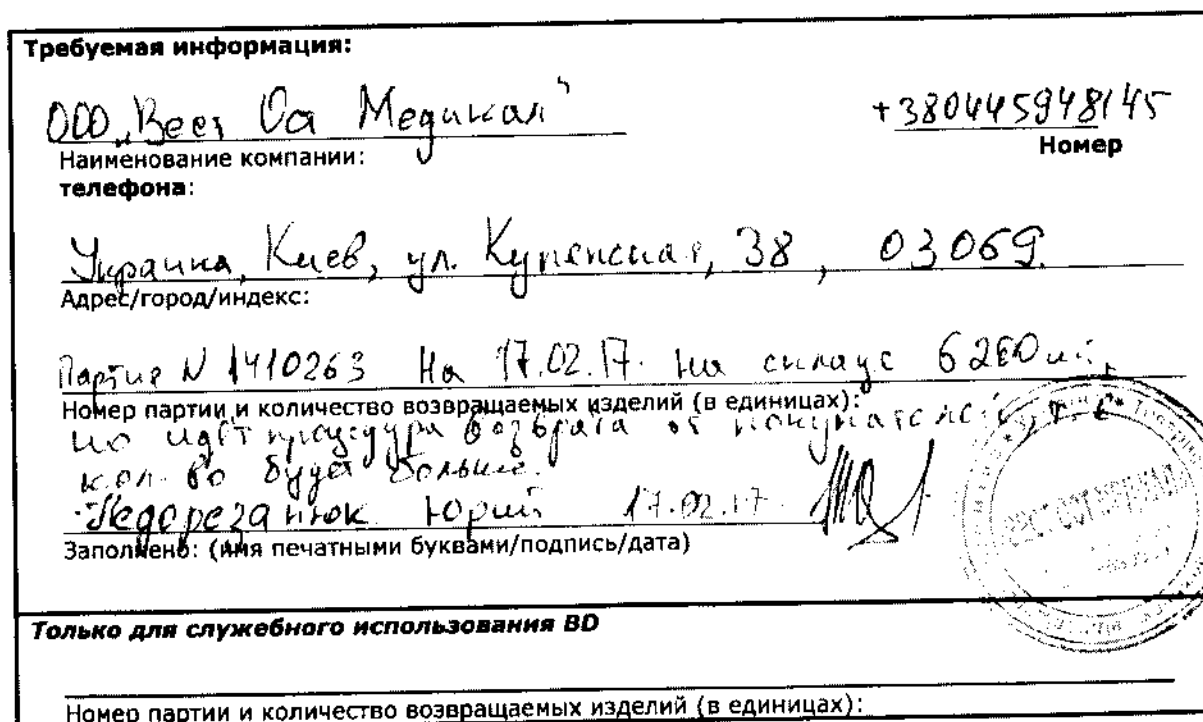 Требуемая информация:
ООО „Вест Ост Медикал" +380445948145
Наименование компании: Номер
телефона:
Украина, Киев, ул. Куренская, 38, 03069
Адрес/город/индекс:
Партия N 1410263 На 17.02.17. на складе 6260 шт,
Номер партии и количество возвращаемых изделий (в единицах):
но идёт процедура возврата от покупателей, т.е
кол-во будет больше.
Юрий 17.02.17
Заполнено: (имя печатными буквами/подпись/дата)
Только для служебного использования BD
Номер партии и количество возвращаемых изделий (в единицах):